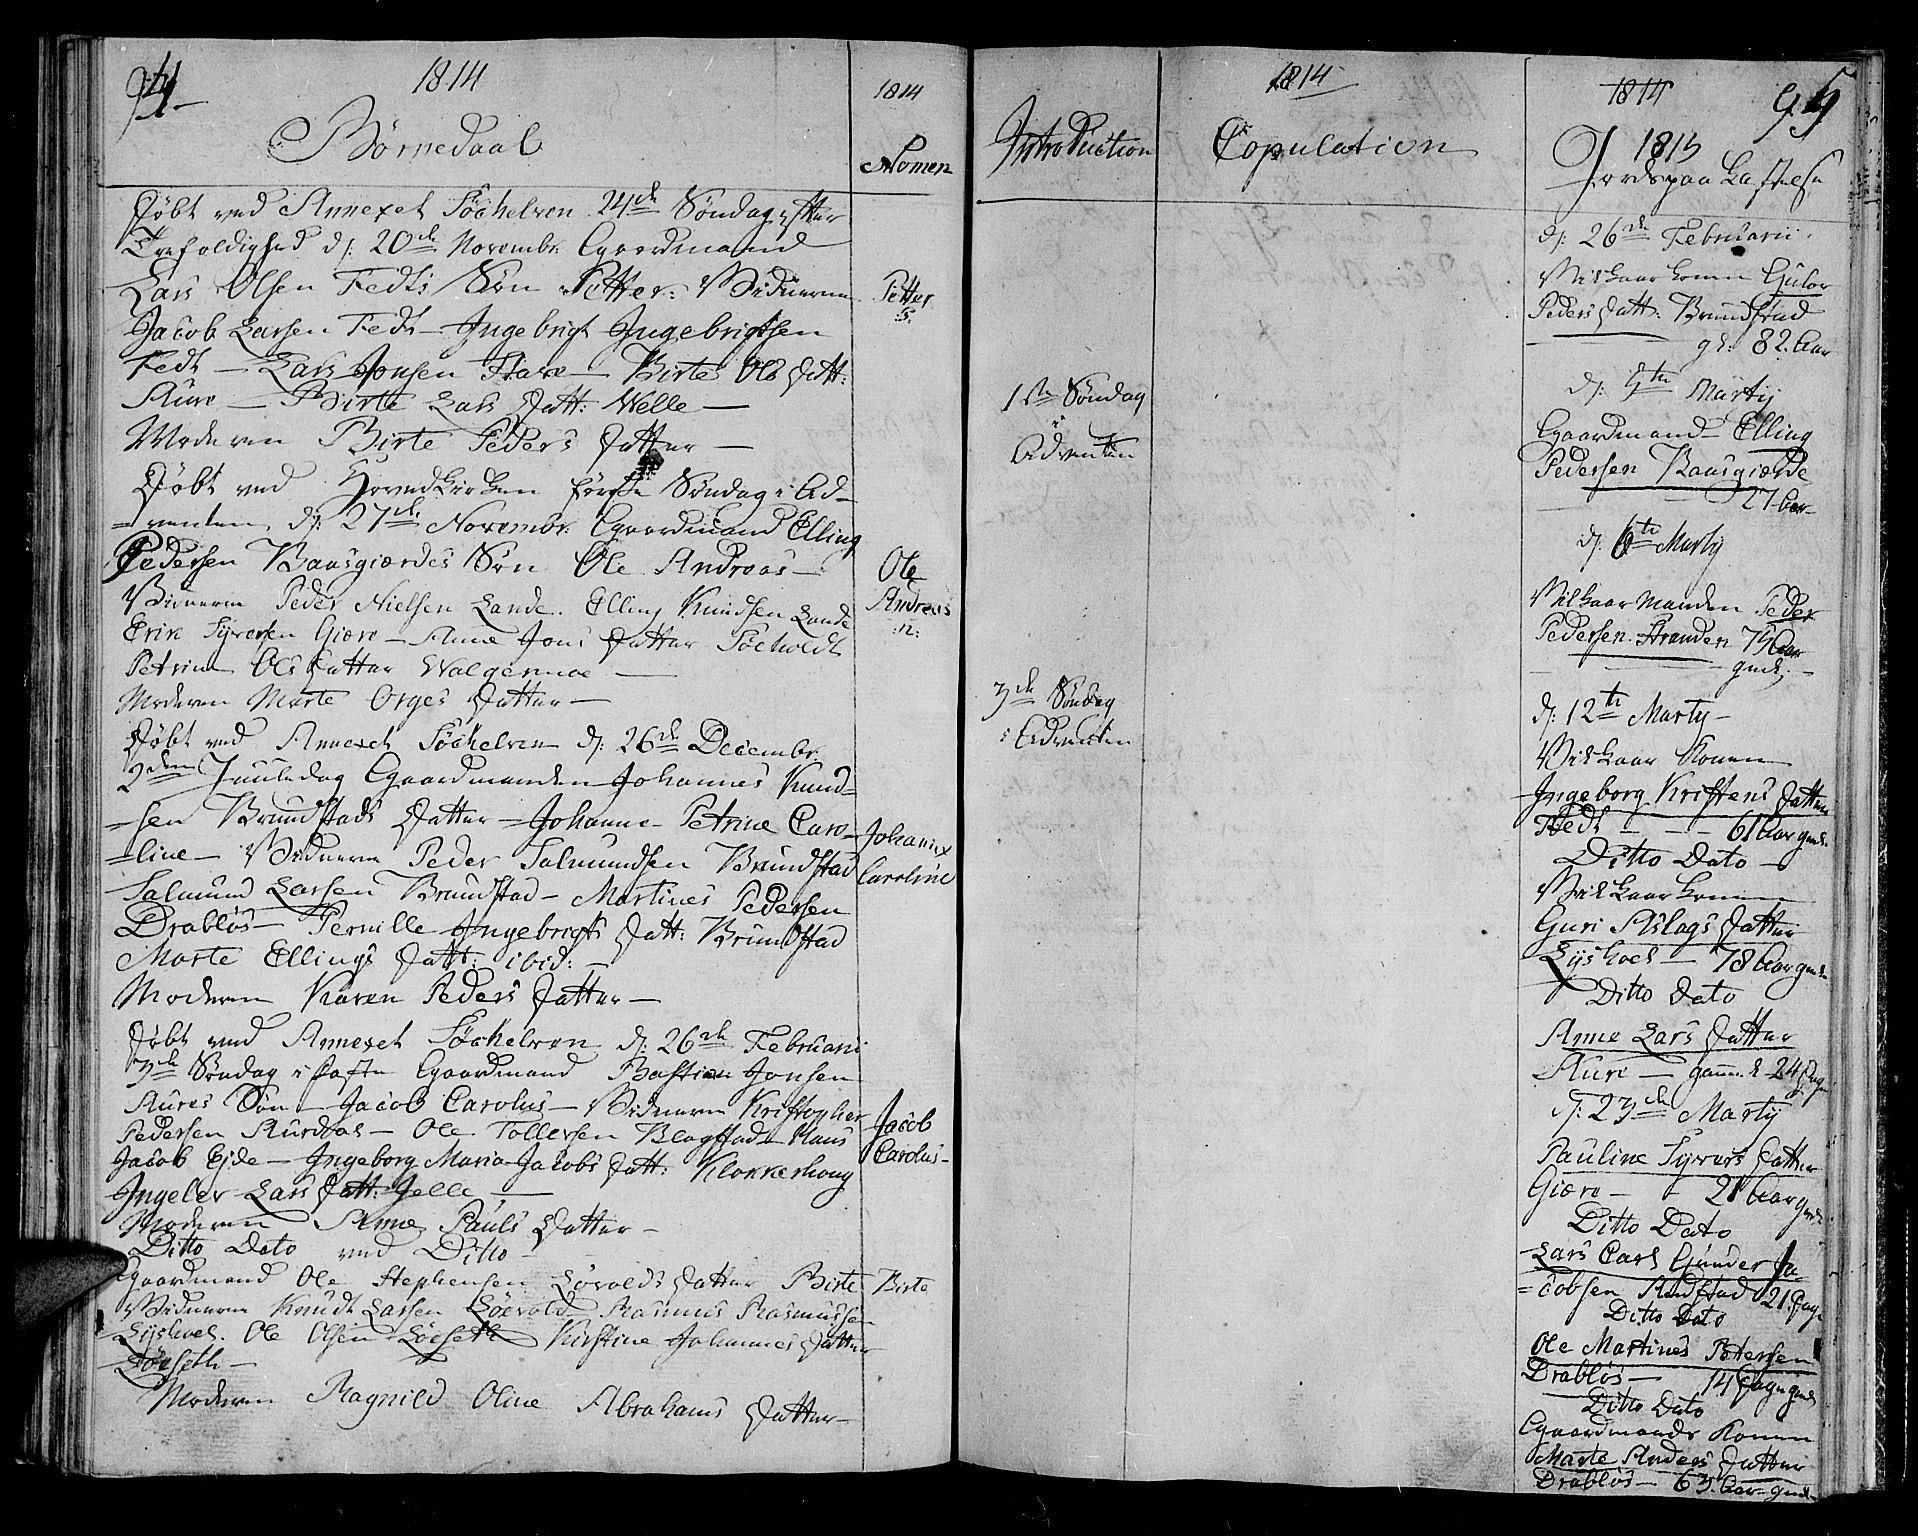 94
1814
Børnedaab
Døbt ved Annexet Söchelven 24de Søndag efter
Trefoldighed d: 20de Novembr. Gaardmand
Lars Olsen Fedts Søn Petter: Vidnerne
Jacob Larsen Fedt - Ingebrigt Ingebrigtsen
Fedt - Lars Jonsen Hare - Birte Ols Datt:
Aure - Birte Lars Datt: Welle -
Moderen Birte Peders Datter -
Døbt ved Hovedkirken første Søndag i Ad-
=venten d: 27de Novembr. Gaardmand Elling
Pedersen Baasgiærdes Søn Ole Andreas -
Vidnerne Peder Nielsen Lande. Elling Knudsen Lande
Erik Syversen Giære - Anne Jons Datter Söeholdt
Petrine Ols Datter Walgermoe -
Moderen Marte Orges Datter -
Døbt ved Annexet Söchelven d: 26de Decembr.
2den Juuledag Gaardmanden Johannes Knud=
=sen Brundstads Datter - Johanne Petrine Caro-
=line - Vidnerne Peder Salmundsen Brundstad
Salmund Larsen Brundstad - Martines Pedersen
Drabløs - Pernille Ingebrigts Datt: Brundstad
Marte Ellings Datt: ibid: -
Moderen Karen Peders Datter -
Døbt ved Annexet Söchelven d: 26de Februarii
3de Søndag i Faste Gaardmand Bastian Jonsen
Aures Søn - Jacob Carolus - Vidnerne Kristopher
Pedersen Aurdal - Ole Tollersen Blagstad - Klaus
Jacob Ejde - Ingeborg Maria Jacobs Datt: Klokkerhoug
Ingeler Lars Datt: Jelle -
Moderen Anne Pauls Datter -
Ditto Dato ved Ditto -
Gaardmand Ole Stephensen Løvolds Datter Birte
Vidnerne Knudt Larsen Løevold Rasmus Rasmussen
Lyshoel. Ole Olsen Løeseth Kirstine Johannes Datter
Løeseth -
Moderen Ragnild Oline Abrahams Datter -
1814
Nomen
Petter
:5:
Ole
Andreas
:12:
Johanne
Caroline
Jacob
Carolus -
Birte
Introduction
1ste Søndag
i
Adventen
3de Søndag
i Adventen
1814
Copulation
1814
95
1815
Jordspaa Kastelse
d: 26de Februarii
Vilkaar Konen Gulov
Peders Datt: Brundstad
gl: 82. Aar
d: 5te Martij
Gaardmand Elling
Pedersen Baasgiærde
27 Aar
d: 6te Martij
Vilkaar Manden Peder
Pedersen Stranden 75 Aar
gml: -
d: 12te Martij -
Vilkaar Konen
Ingeborg Kristens Datter
Fedt - - - 61 Aar gml.
Ditto Dato -
Vilkaar Konen
Guri Aslags Datter
Lyshoel - 78 Aar gml
Ditto Dato
Anne Lars Datter
Aure - gaml 24 Dage
d: 23de Martij
Pauline Syvers Datter
Giære - 21 Aar gml
Ditto Dato
Lars Carl Gunder Ja-
=cobsen Andstad 21. Dage
Ditto Dato
Ole Martines Petersen
Drabløs - 14 Dage gml
Ditto Dato
Gaardmands Konen
Marte Anders Datter
Drabløs - 63. Aar gml